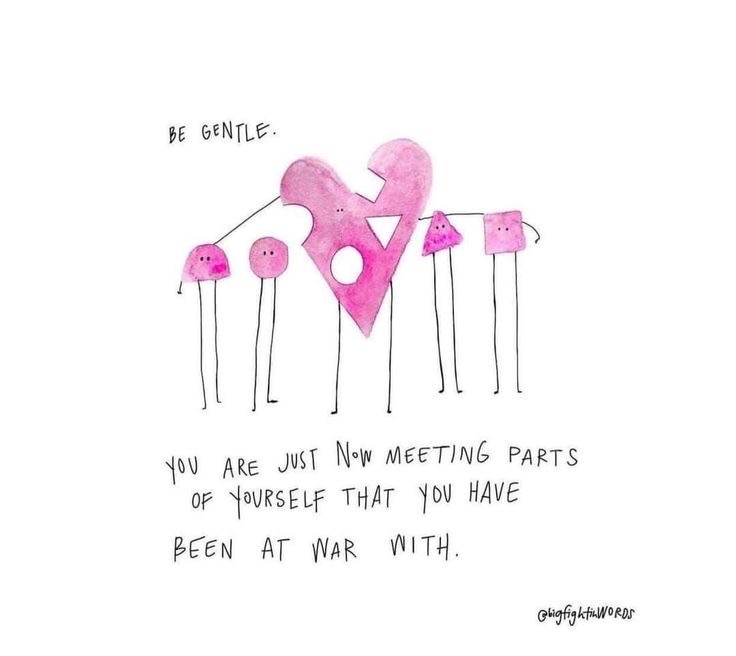 BE GENTLE.
YOU ARE JUST NOW MEETING PARTS
OF YOURSELF THAT YOU HAVE
BEEN AT WAR WITH.
@bigfightinWORDS